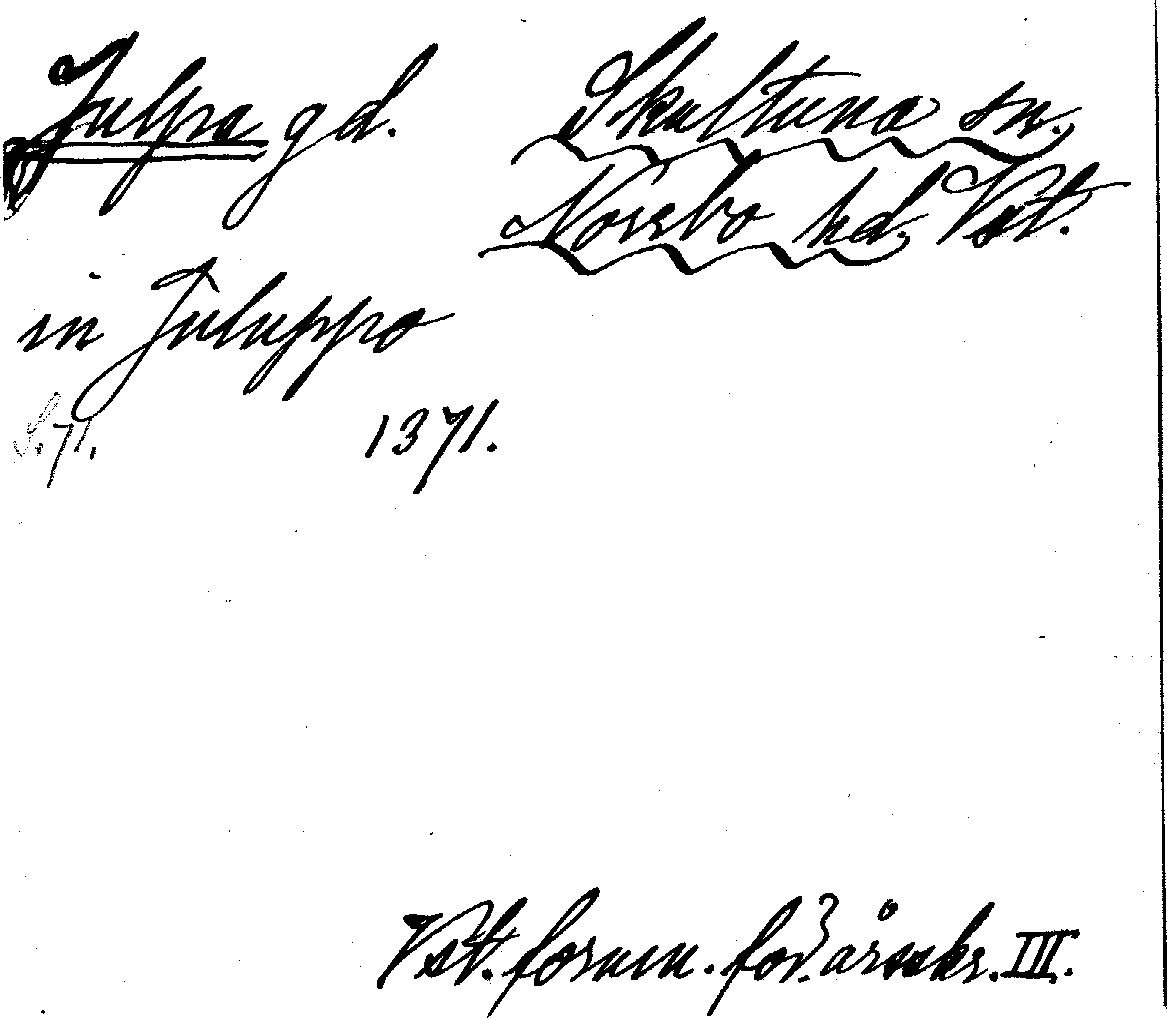 Julpa gd. Skultuna sn.,
Norrbo hd. Vst.
in Juluppo
S. 71. 1371.
Vst. fornm. för:s årsskr. III.